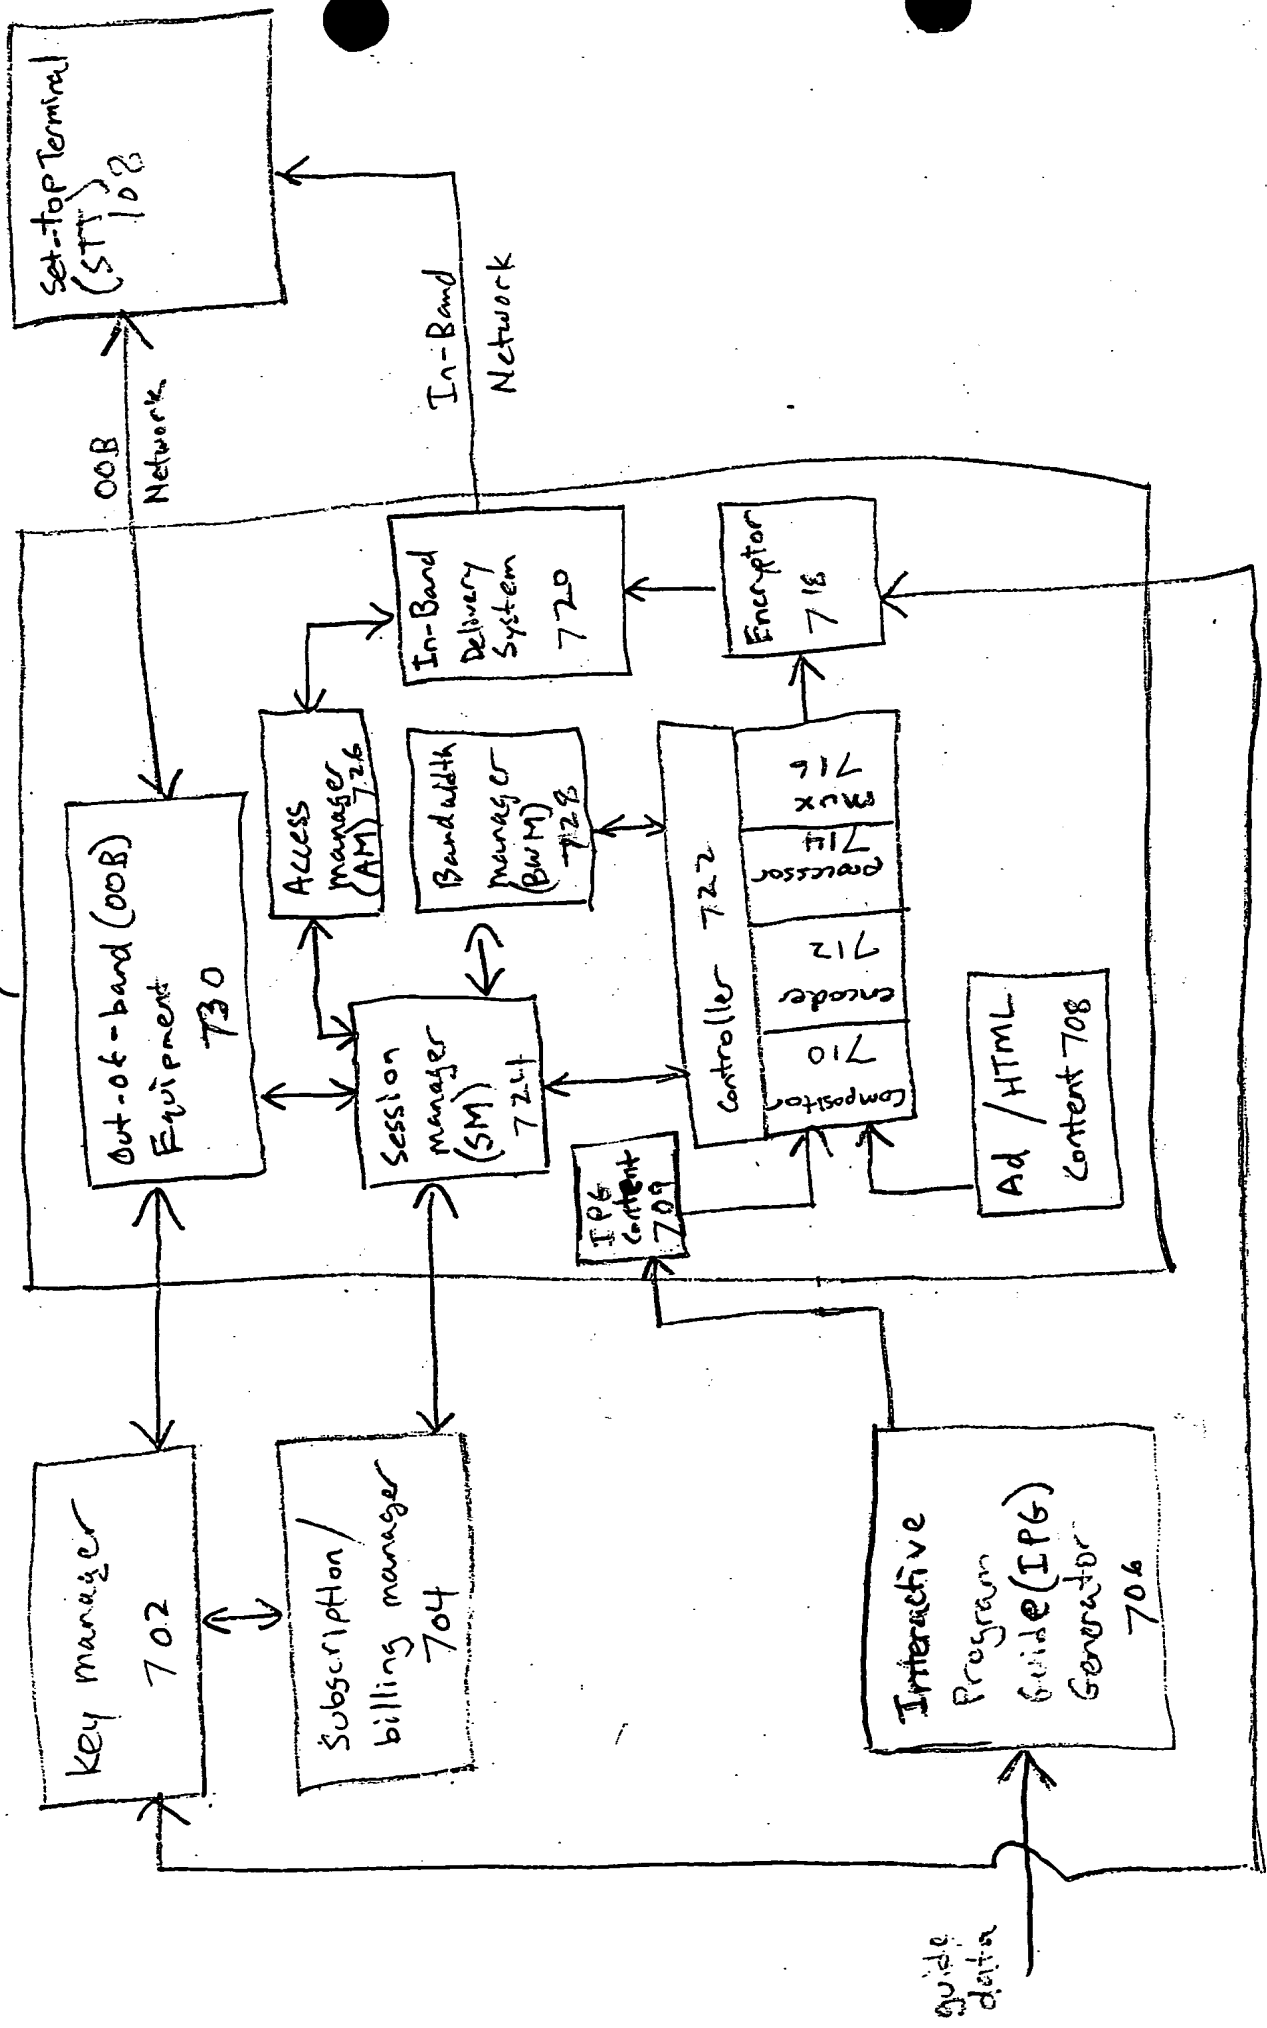 Key manager
702
Subscription/
billing manager
704
guide
data
Interactive
Program
Guide (IPG)
Generator
706
Out-of-band (OOB)
Equipment
730
Session
manager
(SM)
724
Access
manager
(AM) 726
Bandwidth
manager
(BWM)
728
IPG
Content
709
Controller 722
Compositor
710
encoder
712
processor
714
Mux
716
Ad / HTML
Content 708
In-Band
Delivery
System
720
Encryptor
718
OOB
Network
In-Band
Network
Set-top Terminal
(STT)
102